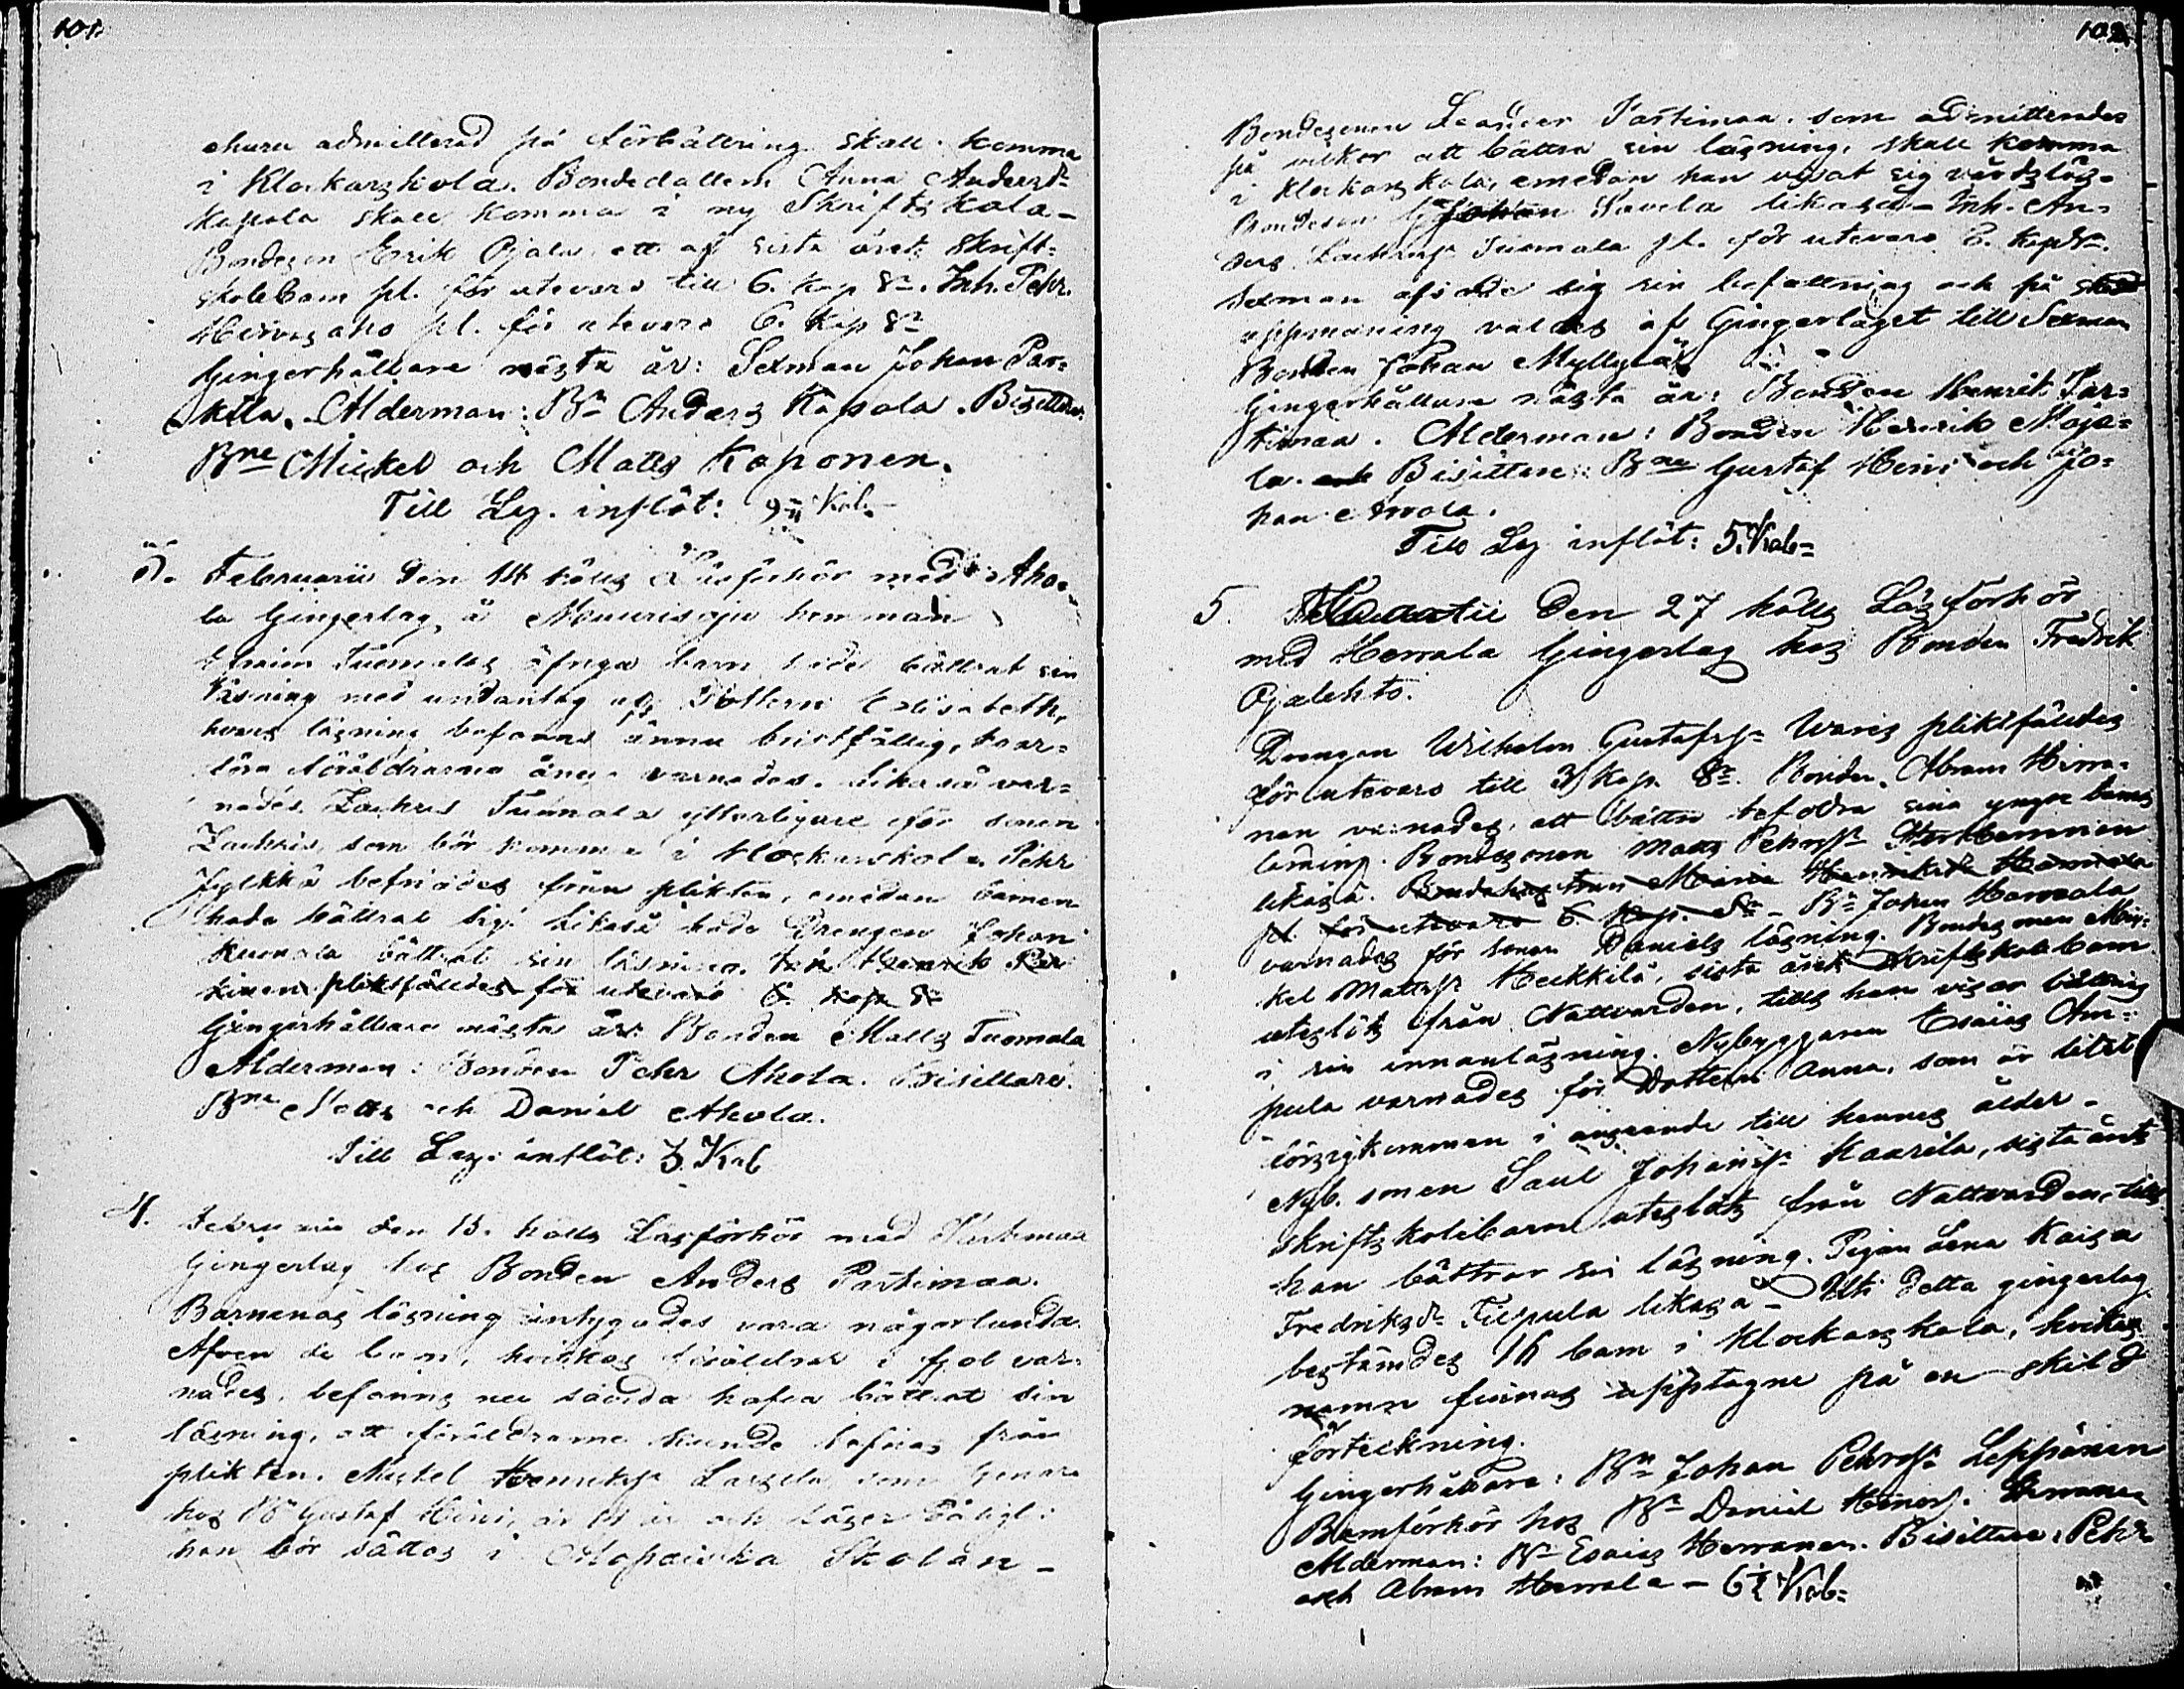 101.
ehuru admitterad på förbättring skall komma
i Klockarskola. Bondedottern Anna Andersd:r
Kapola skall komma i ny Skriftskola -
Bondesonen Erik Ojala, ett af sista årets skrift=
skolebarn pl. för utevaro till 6. kop. S:r. Inh. Pehr
Hirvisaho pl. för utevaro 6. kop S:r
Gingerhållare nästa år: Sexman Johan Par=
kila. Ålderman: B:n Anders Kapola. Bisittare:
B:ne Mickel och Matts Koponen.
Till Lz. inflöt: Kab.
3. Februarii den 14 hölls Läsförhör med Aho=
la Gingerlag, å Naurisoja hemman
Tuomalas öfriga barn hade bättrat sin
läsning med undantag af Dottern Elisabeth,
hvars läsning befanns ännu bristfällig, hvar=
före föräldrarna varnades. Likaså var=
nades Zachris Tuomala ytterligare för sonen
Zachris, som bör komma i klockarskola. Pehr
Jylkkä befriades från plikten, emedan barnen
hade bättrat sig. Likaså hade Drengen Johan
Kuonala bättrat sin läsning. Henrik
pliktfälldes för utevaro 6. kop S:r
Gingerhållare nästa år: Bonden Matts Tuomala
Ålderman: Bonden Pehr Ahola. Bisittare:
B:ne Matts och Daniel Ahola.
Till Lz. inflöt: 3. Kab
4. Februarii den 15. hölls Läsförhör med Partimaa
Gingerlag hos Bonden Anders Partimaa.
Barnenas läsning intygades vara någorlunda.
Äfven de barn, hvilkas föräldrar i fjol var=
nades, befanns nu såvida hafva bättrat sin
läsning, att föräldrarne kunde befrias från
plikten. Mickel Henrikss. Lassila, som
hos B:n Gustaf Heini, är 14 år och läser dåligt:
han bör sättas i Skolan -
102.
Bondesonen Leander Partimaa, som admitterades
på vilkor att bättra sin läsning, skall komma
i klockarskola, emedan han visat sig vårdslös -
Bondeson Johan Savela likaså - Inh. An=
ders Tuomala pl. för utevaro 6. kop S:r.
Sexman afsade sig sin befattning och på
uppmaning valdes af Gingerlaget till Sexman
Bonden Johan Myllylä
Gingerhållare nästa år: Bonden Henrik Par=
timaa. Ålderman: Bonden Henrik Moja=
la. och Bisittare: B:ne Gustaf Heini och Jo=
han
Till Lz inflöt: 5. Kab=
5. Martii den 27 hölls Läsförhör
med Herrala Gingerlag hos Bonden Fredrik
Ojalehto.
Drengen Wilhelm Gustafss. Waris pliktfälldes
för utevaro till 3 kop. S:r. Bonden Abram Hirva=
nen varnades, att bättre befodra sina yngre barns
läsning. Bondesonen Matts Pehrss. Herranen
likaså. Bondehustrun Maria Henriksd:r Herrala
pl. för utevaro 6. kop. S:r - B:n Johan Herrala
varnades för sonen Daniels läsning. Bondesonen Mic=
kel Mattss. Heikkilä, sista årets skriftskolebarn
uteslöts från Nattvarden, tills han visar bättring
i sin innanläsning. Nybyggaren Esaias Am=
pula varnades för Dottern Anna, som är litet
försigkommen i anseende till hennes ålder -
Nyb. sonen Saul Johanss. Kaarela, sista årets
skriftskolebarn uteslöts från Nattvarden, tills
han bättrar sin läsning. Pigan Lena Kaisa
Fredriksd:r Tiepula likaså - Uti detta gingerlag
bestämdes 16 barn i klockarskola, hvilkas
namn finnas upptagne på en skild
förteckning.
Gingerhållare: B:n Johan Pehrss. Leppänen
Barnförhör hos B:n Daniel Herranen
Ålderman: B:n Esaias Herranen. Bisittare: Pehr
och Abram Herrala - 6½ Kab=